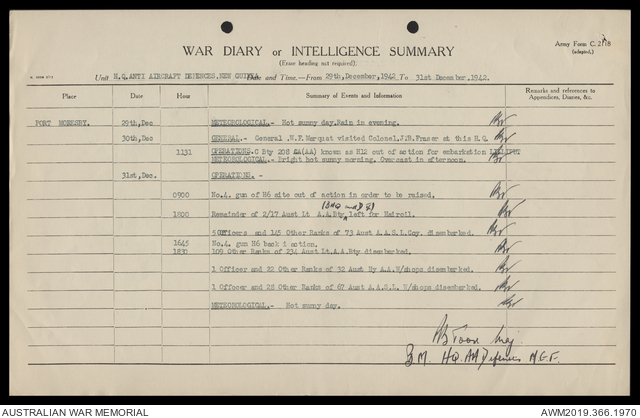 Army Form C. 2118
(adapted.)
WAR DIARY or INTELLIGENCE SUMMARY
(Erase heading not required).
Unit H.Q. ANTI AIRCRAFT DEFENCES, NEW GUINEA Date and Time.—From 29th, December, 1942. To 31st December, 1942.
Place Date Hour Summary of Events and Information Remarks and references to Appendices, Diaries, &c.
PORT MORESBY. 29th, Dec METEOROLOGICAL.- Hot sunny day. Rain in evening.
30th, Dec GENERAL.- General .W.F. Marquat visited Colonel, J.H. Fraser at this H.Q.
1131 OPERATIONS. C Bty 208 CA(AA) known as H12 out of action for embarkation LILLIPUT
METEOROLOGICAL.- Bright hot sunny morning. Overcast in afternoon.
31st, Dec. OPERATIONS.-
0900 No.4. gun of H6 site out of action in order to be raised.
(BHQ and D Tp)
1800 Remainder of 2/17 Aust Lt A.A. Bty left for Hairoil.
5 Officers and 145 Other Ranks of 73 Aust A.A.S.L. Coy. disembarked.
1645 No.4. gun H6 back i action.
1830 109 Other Ranks of 234 Aust Lt.A.A. Bty disembarked.
1 Officer and 22 Other Ranks of 32 Aust Hy A.A. W/shops disembarked.
1 Officer and 28 Other Ranks of 67 Aust A.A.S.L. W/shops disembarked.
METEOROLOGICAL.- Hot sunny day.
Maj.
B.M. HQ AA Defences N.G.F.
AUSTRALIAN WAR MEMORIAL AWM2019.366.1970